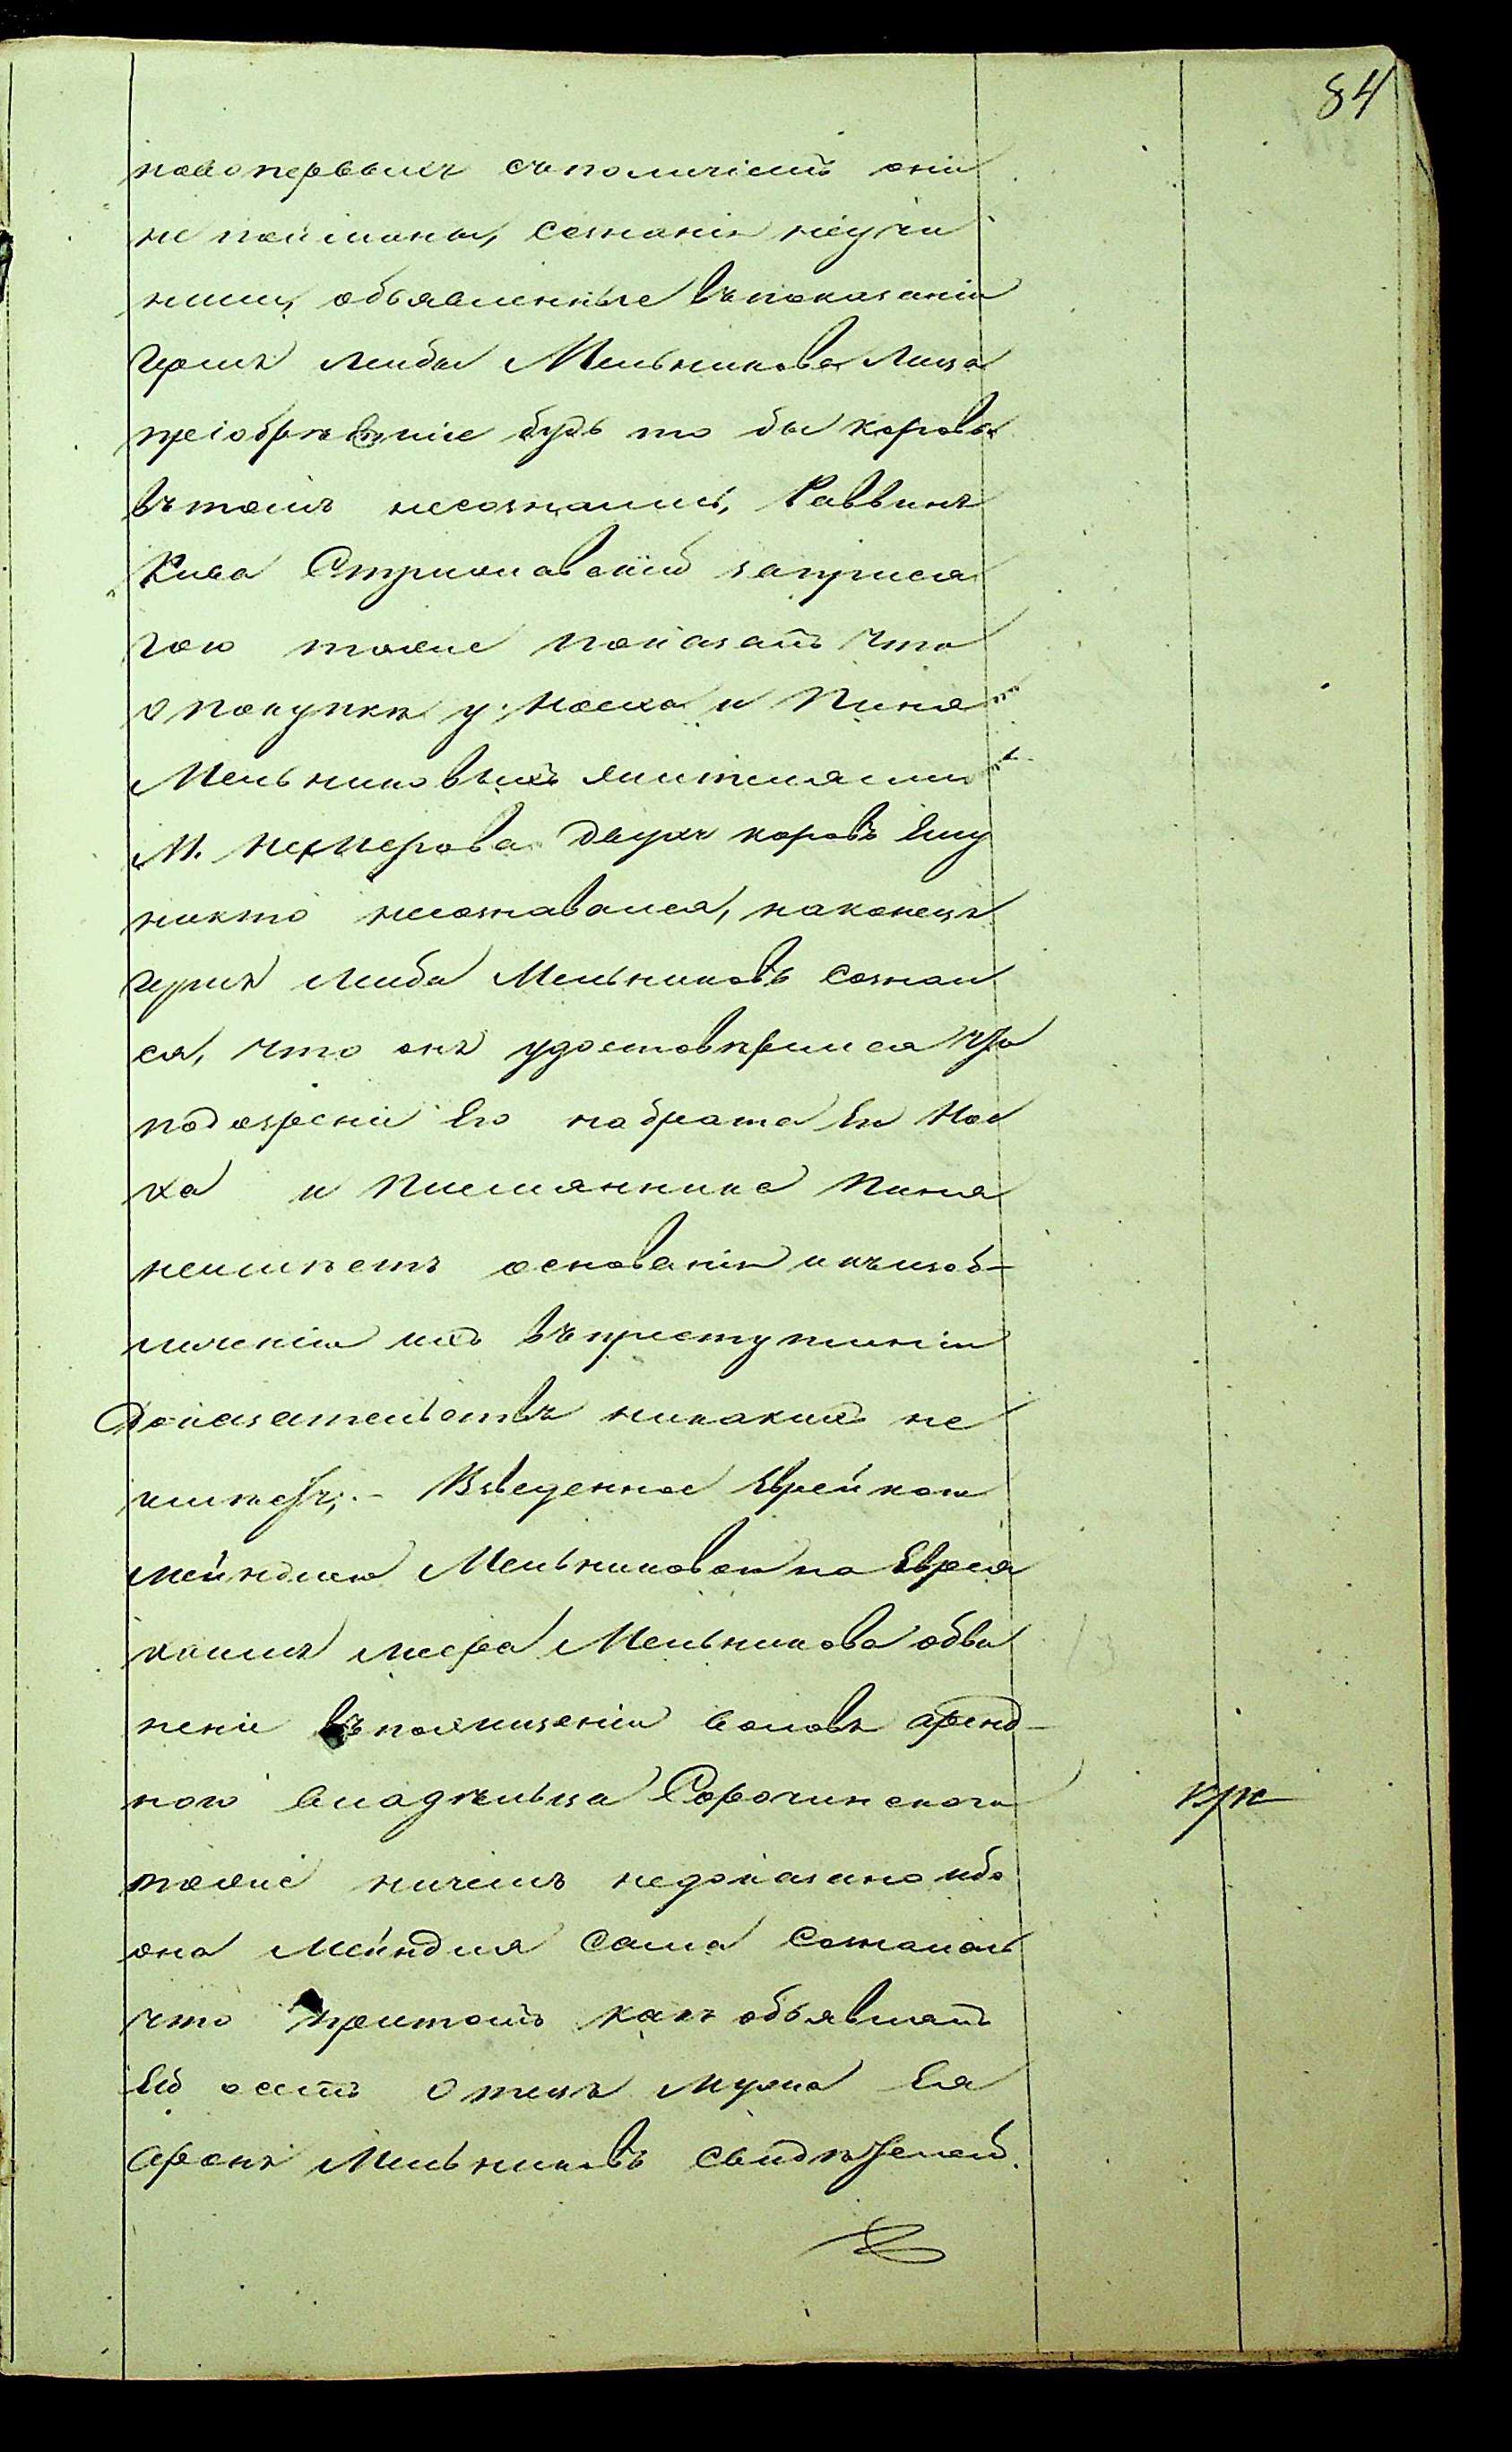 84
поелопервыхъ съполичіемъ они
не пойманы, сознанія неучи
нили, объявленные въпоказаніи
Гершъ Лейбы Мельникова Лица
пріобрѣвшіе будь то бы коровы
въ томъ несознались, Раввинъ
Кива Стрижавскій заприся
гою тоже показалъ что
о покупкѣ у Ноеха и Пиня
Мельниковыхъ жителями
М. Немерова двухъ коровъ Ему
никто несознавался, наконецъ
Гершъ Лейба Мельниковъ сознал
ся, что онъ удостовѣрился что
подозреніе Его набрата Его Ное
ха и Племянника Пиня
неимѣетъ основанія и къизоб-
личенію ихъ въпреступленіи
Доказательствъ никакихъ не
имѣетъ; - Взведенное Еврейкою
Мейндлею Мельниковою на Еврея
Хаимъ Меера Мельникова обви
неніе въпохищеніи воловъ аренд-
ного владѣльца Сорочинскаго
тоже ничемъ недоказано ибо
она Мейндля сама созналась
что притомъ какъ объявлялъ
Ей о семъ Отецъ мужа Ея
Аронъ Мельниковъ свидѣтелей